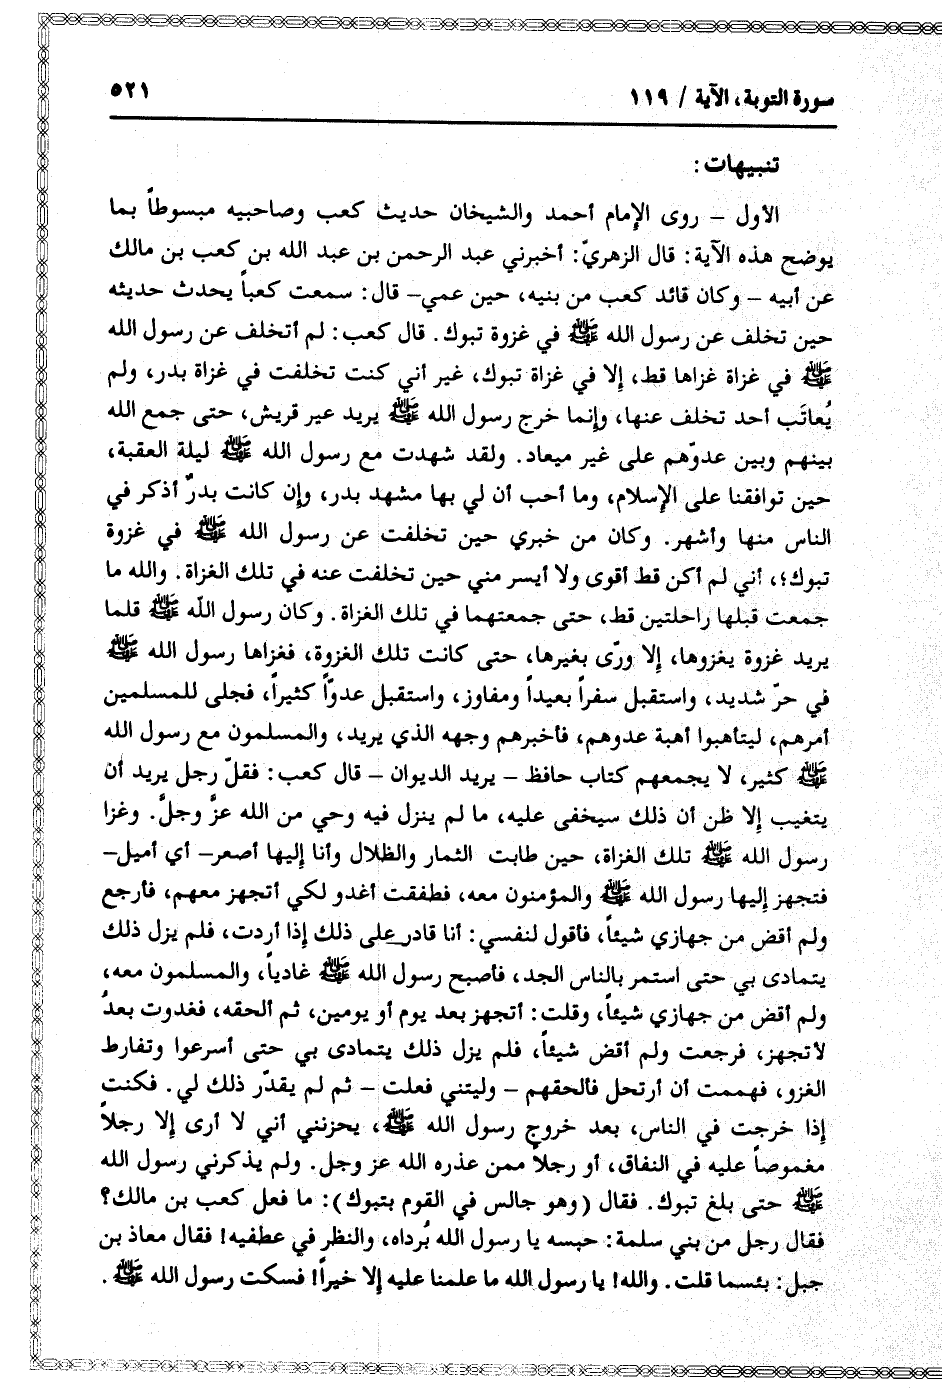 سورة التوبة، الآية / ١١٩
٥٢١
تنبيهات:
الأول – روى الإمام أحمد والشيخان حديث كعب وصاحبيه مبسوطاً بما
يوضح هذه الآية: قال الزهريّ: أخبرني عبد الرحمن بن عبد الله بن كعب بن مالك
عن أبيه – وكان قائد كعب من بنيه، حين عمي– قال: سمعت كعباً يحدث حديثه
حين تخلف عن رسول الله ﷺ في غزوة تبوك. قال كعب: لم أتخلف عن رسول الله
ﷺ في غزاة غزاها قط، إلا في غزاة تبوك، غير أني كنت تخلفت في غزاة بدر، ولم
يُعاتَب أحد تخلف عنها، وإنما خرج رسول الله ﷺ يريد عير قريش، حتى جمع الله
بينهم وبين عدوّهم على غير ميعاد. ولقد شهدت مع رسول الله ﷺ ليلة العقبة،
حين توافقنا على الإسلام، وما أحب أن لي بها مشهد بدر، وإن كانت بدرٌ أذكر في
الناس منها وأشهر. وكان من خبري حين تخلفت عن رسول الله ﷺ في غزوة
تبوك؛، أني لم أكن قط أقوى ولا أيسر مني حين تخلفت عنه في تلك الغزاة. والله ما
جمعت قبلها راحلتين قط، حتى جمعتهما في تلك الغزاة. وكان رسول اللّه ﷺ قلما
يريد غزوة يغزوها، إلا ورّى بغيرها، حتى كانت تلك الغزوة، فغزاها رسول الله ﷺ
في حرّ شديد، واستقبل سفراً بعيداً ومفاوز، واستقبل عدوّاً كثيراً، فجلى للمسلمين
أمرهم، ليتأهبوا أهبة عدوهم، فأخبرهم وجهه الذي يريد، والمسلمون مع رسول الله
ﷺ كثير، لا يجمعهم كتاب حافظ – يريد الديوان – قال كعب: فقلّ رجل يريد أن
يتغيب إلا ظن أن ذلك سيخفى عليه، ما لم ينزل فيه وحي من الله عزَّ وجلَّ. وغزا
رسول الله ﷺ تلك الغزاة، حين طابت الثمار والظلال وأنا إليها أصعر– أي أميل–
فتجهز إليها رسول الله ﷺ والمؤمنون معه، فطفقت أغدو لكي أتجهز معهم، فأرجع
ولم أقض من جهازي شيئاً، فأقول لنفسي: أنا قادر على ذلك إذا أردت، فلم يزل ذلك
يتمادى بي حتى استمر بالناس الجد، فأصبح رسول الله ﷺ غادياً، والمسلمون معه،
ولم أقض من جهازي شيئاً، وقلت: أتجهز بعد يوم أو يومين، ثم ألحقه، فغدوت بعدُ
لأتجهز، فرجعت ولم أقض شيئاً، فلم يزل ذلك يتمادى بي حتى أسرعوا وتفارط
الغزو، فهممت أن أرتحل فألحقهم – وليتني فعلت – ثم لم يقدّر ذلك لي. فكنت
إذا خرجت في الناس، بعد خروج رسول الله ﷺ، يحزنني أني لا أرى إلا رجلاً
مغموصاً عليه في النفاق، أو رجلاً ممن عذره الله عز وجل. ولم يذكرني رسول الله
ﷺ حتى بلغ تبوك. فقال (وهو جالس في القوم بتبوك): ما فعل كعب بن مالك؟
فقال رجل من بني سلمة: حبسه يا رسول الله بُرداه، والنظر في عطفيه! فقال معاذ بن
جبل: بئسما قلت. والله! يا رسول الله ما علمنا عليه إلا خيراً! فسكت رسول الله ﷺ.